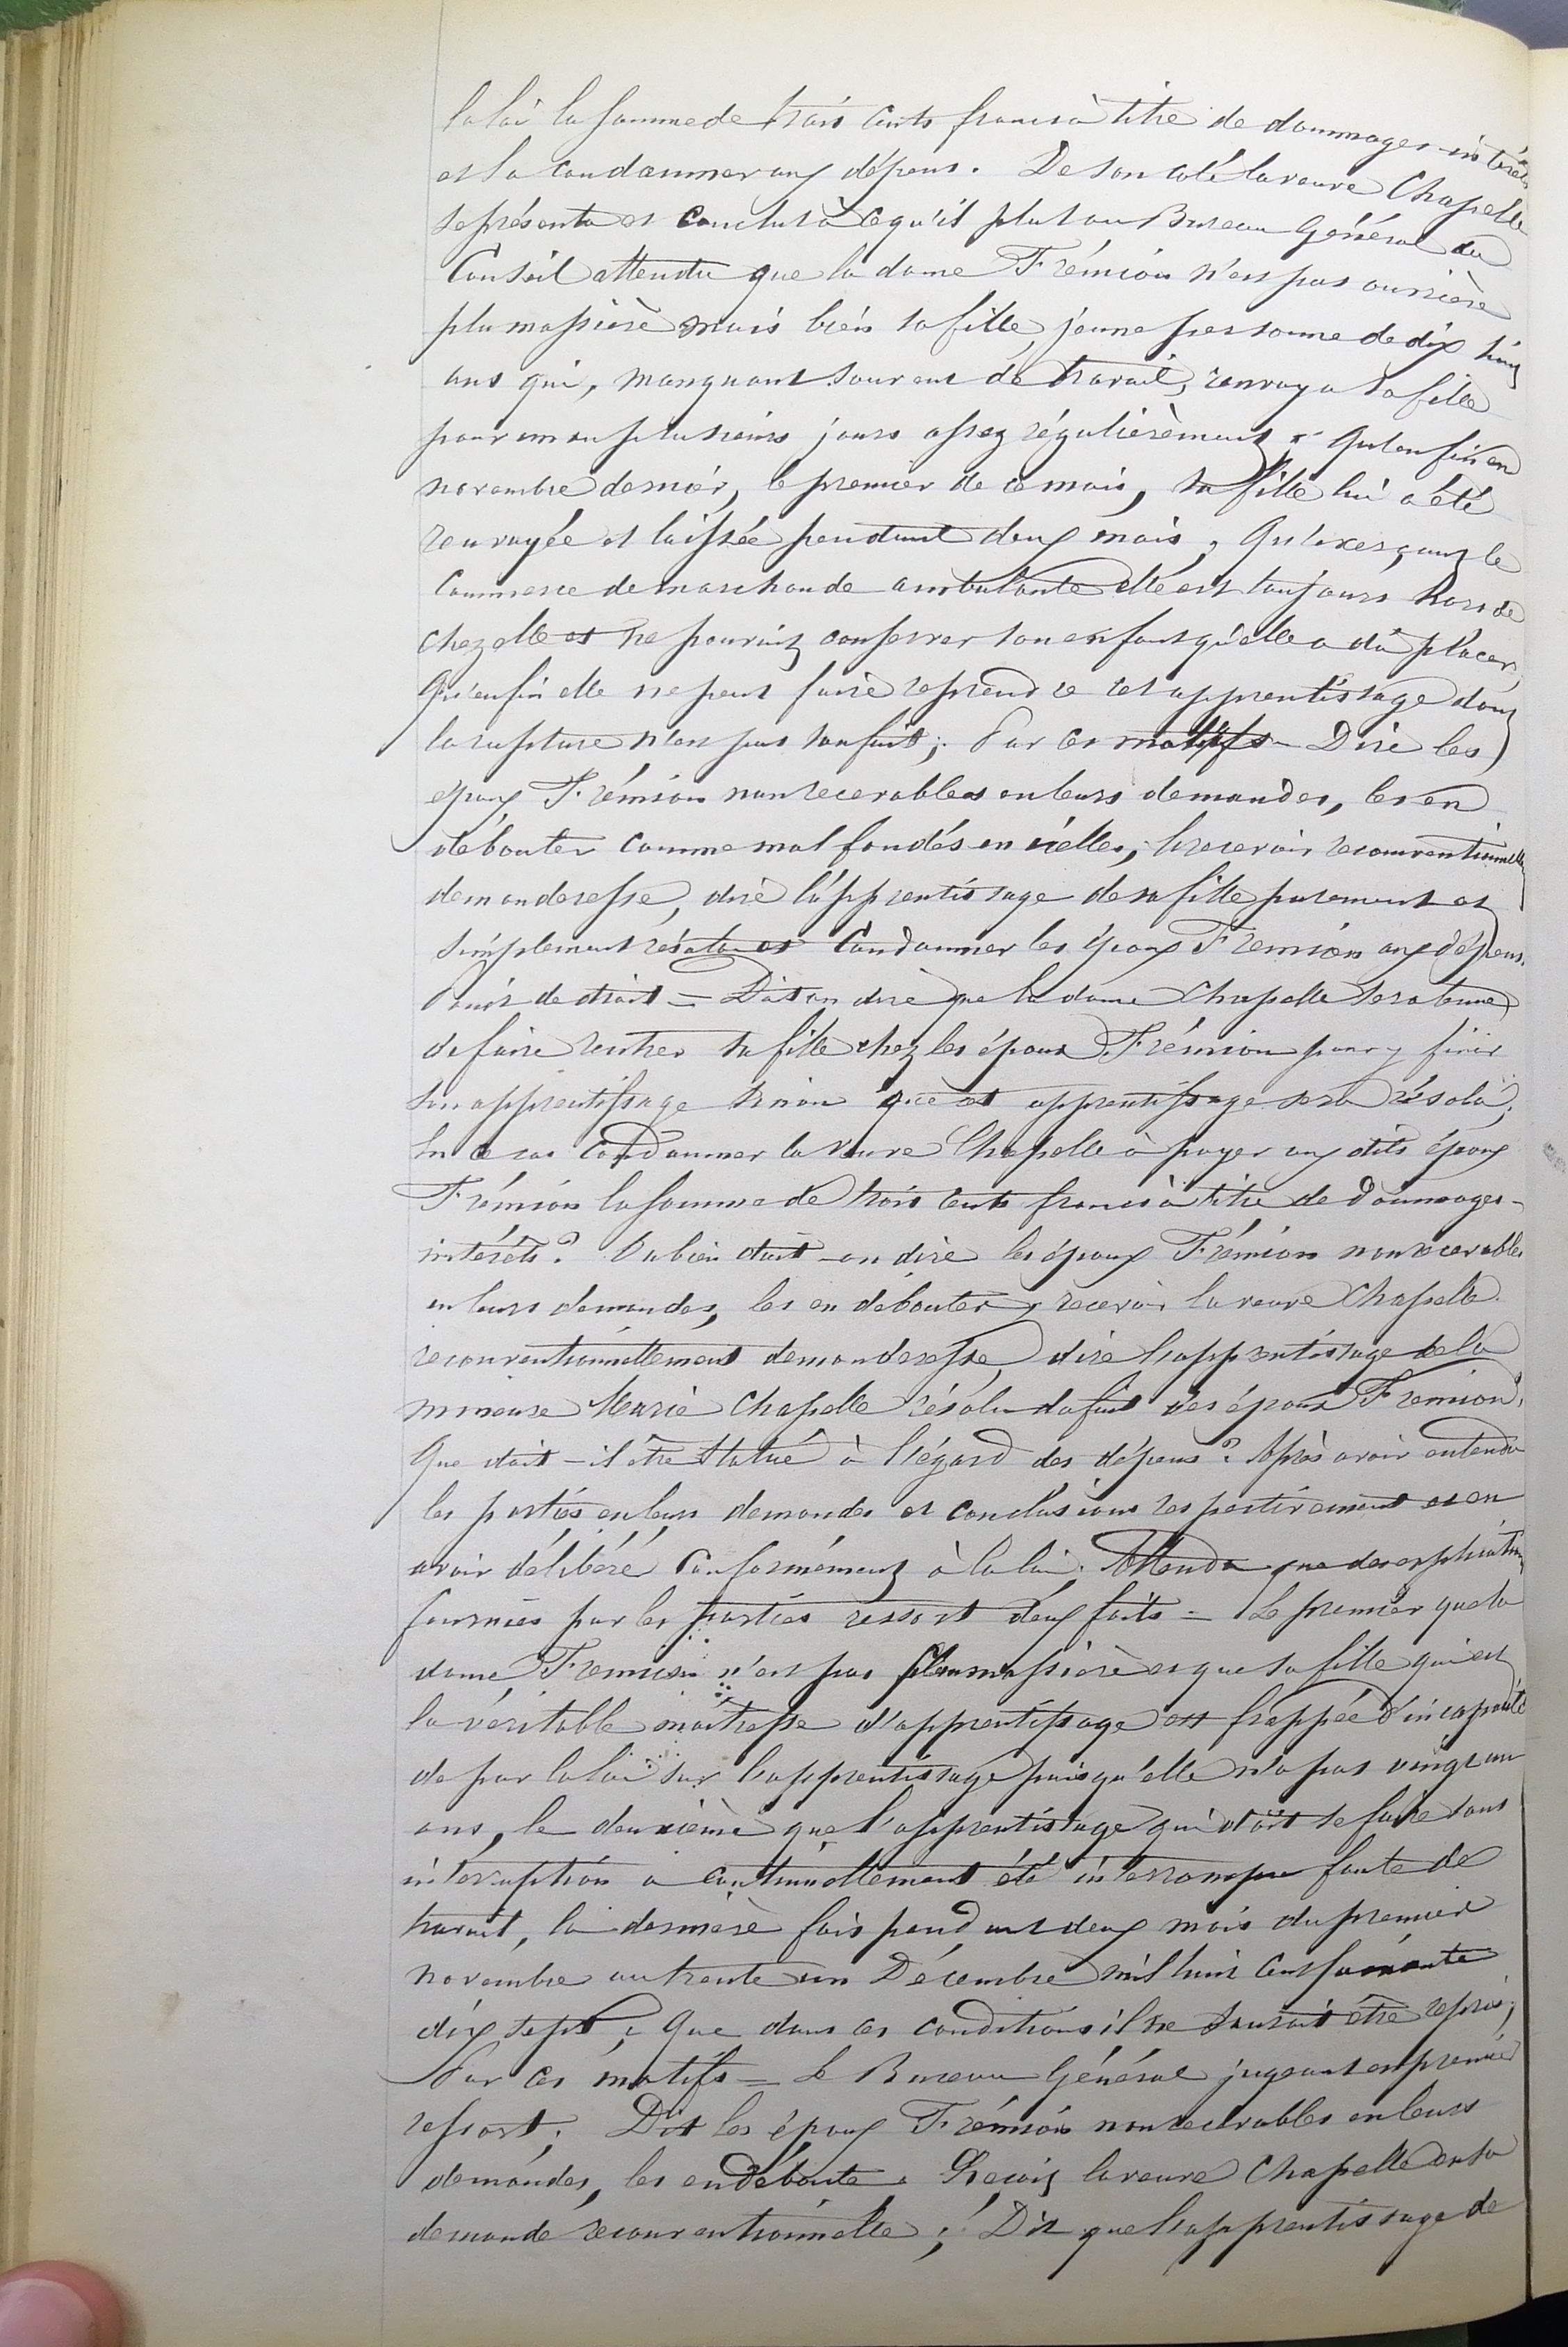 la loi la somme de trois cents francs à titre de dommages-intérêts
et la condamner aux dépens. De son côté la veuve Chapelle
se présenta et conclut à ce qu'il plut au Bureau Général du
Conseil attendu que la dame Frémion n'est pas ouvrière
plumassière mais bien sa fille, jeune personne de dix huit
ans qui, manquant souvent de travail, renvoya sa fille
pour un ou plusieurs jours assez régulièrement. Qu'enfin en
novembre dernier, le premier de ce mois, sa fille lui a été
renvoyée et laissée pendant deux mois, Qu'exerçant le
commerce de marchande ambulante elle est toujours hors de
chez elle et ne pouvait conserver son enfant qu'elle a dû placer,
Qu'enfin elle ne peut faire reprendre cet apprentissage dont
la rupture n'est pas son fait; Par ces motifs – Dire les
époux Frémion non recevables en leurs demandes, les en
débouter comme mal fondés en icelles; la recevoir reconventionnelle
demanderesse, dire l'apprentissage de sa fille purement et
simplement résolu et condamner les époux Fremion aux dépens.
Point de droit = Doit-on dire que la dame Chapelle sera tenue
de faire rentrer sa fille chez les époux Frémion pour y finir
son apprentissage sinon que cet apprentissage sera résolu,
En ce cas Condamner la veuve Chapelle à payer aux dits époux
Frémion la somme de trois cents francs à titre de dommages-
intérêts? Ou bien doit-on dire les époux Frémion non recevables
en leurs demandes, les en débouter, recevoir la veuve Chapelle
reconventionnellement demanderesse, dire l'apprentissage de la
mineure Marie Chapelle résolu du fait des époux Fremion.
Que doit-il être statué à l'égard des dépens? Après avoir entendu
les parties en leurs demandes et conclusions respectivement et en
avoir délibéré conformément à la loi; Attendu que des explications
fournies par les parties ressort deux faits = Le premier que la
dame Fremion n'est pas plumassière et que sa fille qui est
la véritable maîtresse d'apprentissage est frappée d'incapacité
de par la loi sur l'apprentissage puisqu'elle n'a pas vingt un
ans, le deuxième que l'apprentissage qui doit se faire sans
interruption a continuellement été interrompu faute de
travail, la dernière fois pendant deux mois du premier
novembre au trente un Décembre mil huit cent soixante
dix sept; Que dans ces conditions il ne saurait être repris;
Par ces motifs = Le Bureau Général jugeant en premier
ressort; Dit les époux Frémion non recevables en leurs
demandes, les en déboute. Reçoit la veuve Chapelle en sa
demande reconventionnelle; Dit que l'apprentissage de